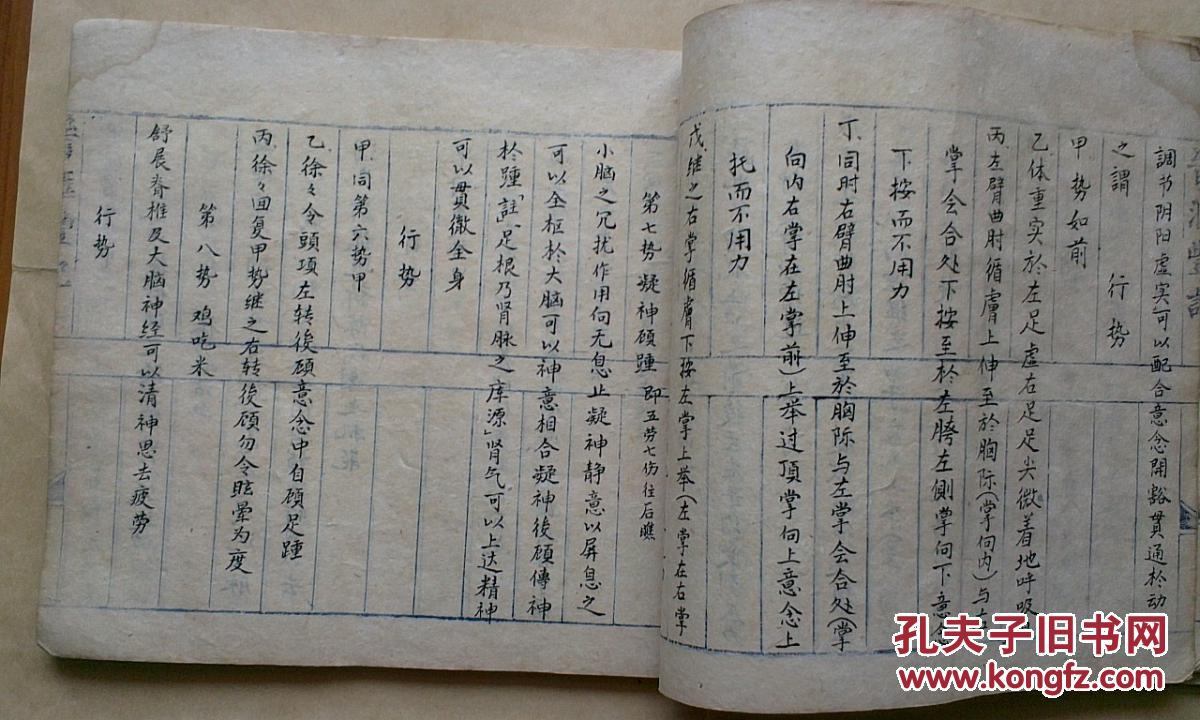 调节阴阳虚实可以配合意念開豁貫通於动
之謂
行势
甲势如前
乙体重实於左足虚右足足尖微着地呼吸
丙左臂曲肘循膚上伸至於胸际(掌向内)与
掌会合处下按至於左胯左侧掌向下意念
下按而不用力
丁、同时右臂曲肘上伸至於胸际与左掌会合处(掌
向内右掌在左掌前)上举过頂掌向上意念上
托而不用力
戊、继之右掌循膚下按左掌上举(左掌在右掌
第七势 凝神顾踵 即五劳七伤往后瞧
小脑之冗扰作用向无息止凝神静意以屏息之
可以全枢於大脑可以神意相合凝神後顾傳神
於踵「註」足根乃肾脉之库源」肾气可以上达精神
可以貫徹全身
行势
甲、同第六势甲
乙徐々令頭項左转後顾意念中自顾足踵
丙、徐々回复甲势继之右转後顾勿令眩晕为度
第八势 鸡吃米
舒展脊椎及大脑神经可以清神思去疲劳
行势
孔夫子旧书网
www.kongfz.com